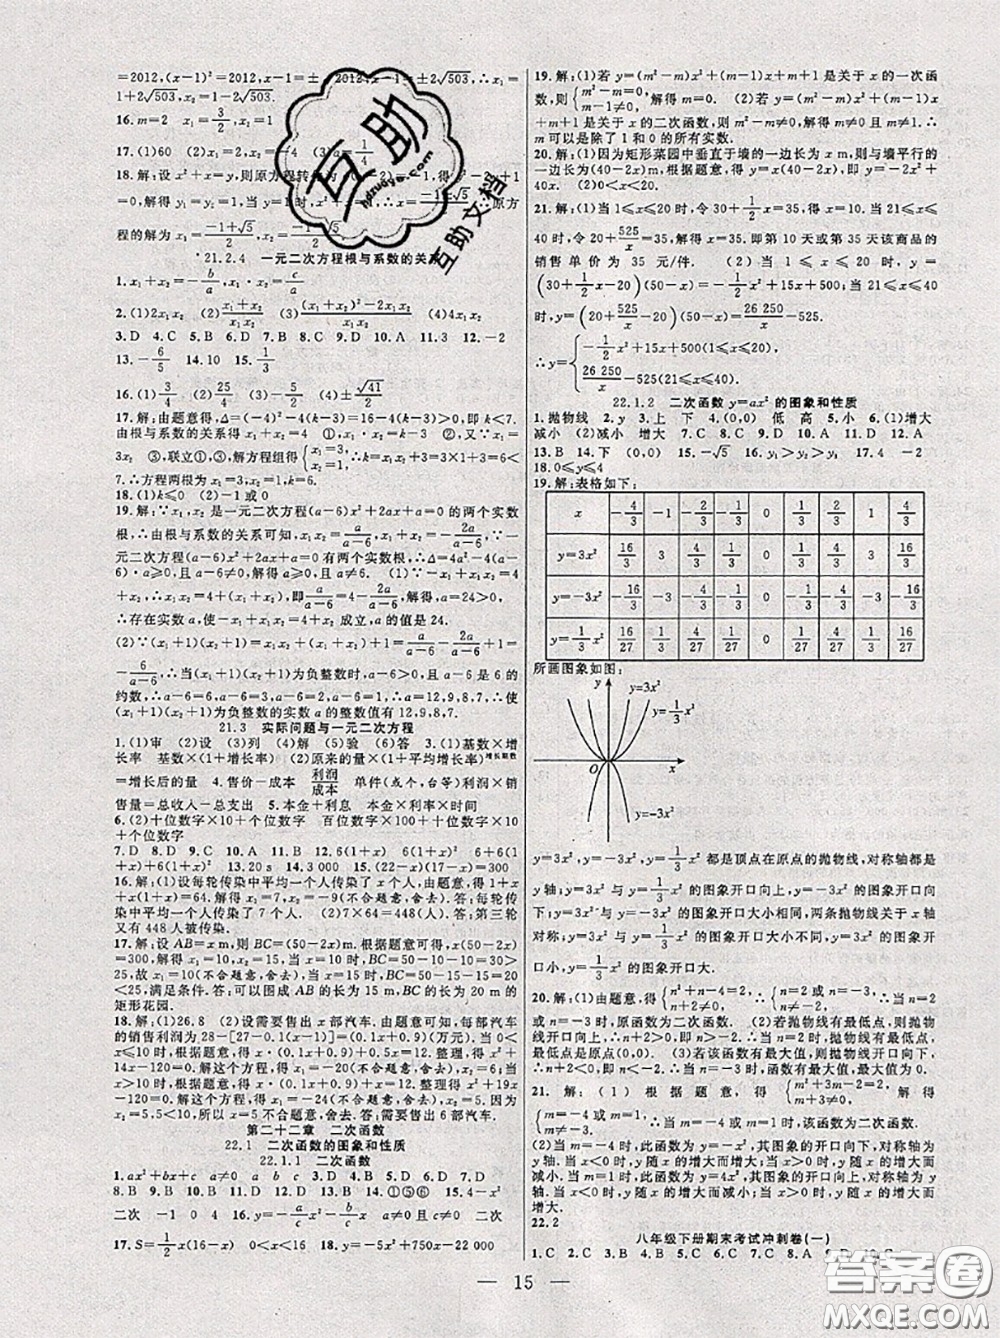 =2012,(x-1)²=2012,x-1=± 2012,x-1=±2√503,∴x₁=
1+2√503,x₂=1-2√503.
16.m=2 x₁=3/2,x₂=
17.(1)60 (2)x₁=1,x₂=- (3)x=1/4
18.解:设x²+x=y,则原方程转 y₂=-2,得
=0,解得y₁=1,y₂= 当y=1时,x²+x -1±√5/2 ∴原方
程的解为x₁=(-1+√5)/2,x₂=
21.2.4 一元二次方程根与系数的关系
1.x₁+x₂=-b/a,x₁·x₂=c/a
2.(1)2x₁x₂ (2)(x₁+x₂)/(x₁x₂) (3)((x₁+x₂)²-2x₁x₂)/(x₁x₂) (4)4x₁x₂
3.D 4.C 5.B 6.D 7.B 8.C 9.D 10.A 11.3 12.-2
13.-6/5 14.10 15.1/3
16.(1)3/4 (2)25/4 (3)3/4 (4)±√41/2
17.解:由题意得,Δ=(-4)²-4(k-3)=16-4(k-3)>0,即k<7.
由根与系数的关系得x₁+x₂=4 ①,x₁x₂=k-3 ②,又x₁=
3x₂ ③,联立①,③,解方程组得{x₁=3,x₂=1,∴k=x₁x₂+3=3×1+3=6<
7.∴方程两根为x₁=3,x₂=1,k=6.
18.(1)k≤0 (2)-1或0
19.解:∵x₁,x₂是一元二次方程(a-6)x²+2ax+a=0的两个实数
根,∴由根与系数的关系可知,x₁x₂=a/(a-6),x₁+x₂=-2a/(a-6).∵一
元二次方程(a-6)x²+2ax+a=0有两个实数根,∴Δ=4a²-4(a-
6)·a≥0,且a-6≠0,解得a≥0,且a≠6. (1)∵-x₁+x₁x₂=4+
x₂,∴x₁x₂=4+(x₁+x₂),即a/(a-6)=4-2a/(a-6),解得a=24>0.∴
存在实数a,使-x₁+x₁x₂=4+x₂成立,a的值是24.
(2)∵(x₁+1)(x₂+1)=x₁x₂+(x₁+x₂)+1=a/(a-6)-2a/(a-6)+1=
-6/(a-6).∴当(x₁+1)(x₂+1)为负整数时,a-6>0,且a-6是6的
约数,∴a-6=6,a-6=3,a-6=2,a-6=1,∴a=12,9,8,7,∴使
(x₁+1)(x₂+1)为负整数的实数a的整数值有12,9,8,7.
21.3 实际问题与一元二次方程
1.(1)审 (2)设 (3)列 (4)解 (5)验 (6)答 3.(1)基数×增
长率 基数×(1+增长率) (2)原来的量×(1+平均增长率)^增长期数
=增长后的量 4.售价-成本 利润/成本 单件(或个,台等)利润×销
售量=总收入-总支出 5.本金+利息 本金×利率×时间
6.(2)十位数字×10+个位数字 百位数字×100+十位数字×10
+个位数字
7.D 8.D 9.C 10.A 11.B 12.6(1+x) 6(1+x)² 6+6(1
+x)+6(1+x)² 13.20 s 14.3 000 15.(22-x)(17-x)=300
16.解:(1)设每轮传染中平均一个人传染了x个人,由题意,得1+
x+x(x+1)=64,解得x₁=7,x₂=-9(不合题意,舍去).答:每轮传
染中平均一个人传染了7个人. (2)7×64=448(人).答:第三轮
又有448人被传染.
17.解:设AB=x m,则BC=(50-2x)m.根据题意,得x(50-2x)
=300,解得x₁=10,x₂=15.当x=10时,BC=50-2×10=30>
25,故x₁=10(不合题意,舍去).当x=15时,BC=50-2×15=20<
25,满足条件.答:可以围成AB的长为15 m,BC的长为20 m的
矩形花园.
18.解:(1)26.8 (2)设需要售出x部汽车.由题意可知,每部汽车
的销售利润为28-[27-0.1(x-1)]=(0.1x+0.9)(万元).当0
≤x≤10时,根据题意,得x·(0.1x+0.9)+0.5x=12.整理,得x²+
14x-120=0.解这个方程,得x₁=-20(不合题意,舍去),x₂=6.当
x>10时,根据题意,得x·(0.1x+0.9)+x=12.整理得x²+19x-
120=0.解这个方程,得x₁=-24(不合题意,舍去),x₂=5.因为5<
10,所以x₂=5不合题意,舍去.答:需要售出6部汽车.
第二十二章 二次函数
22.1 二次函数的图象和性质
22.1.1 二次函数
1.ax²+bx+c a≠0 a b c 3.D 4.D 5.C 6.D 7.D
8.B 9.B 10.A 11.C 12.B 13.B 14.①⑤⑥ 15.a≠0
二次 -1 0 4 16.y=-1/2x²-1/2x a≠0 二次 a=0 二次
17.S=1/2x(16-x) 0<x<16 18.y=-10x²+750x-9 000
19.解:(1)若y=(m²-m)x²+(m-1)x+m+1是关于x的一次函
数,则{m²-m=0,m-1≠0,解得m=0. (2)若y=(m²-m)x²+(m-1)x
+m+1是关于x的二次函数,则m²-m≠0,解得m≠1且m≠0.∴
m可以是除了1和0的所有实数.
20.解:(1)因为矩形菜园中垂直于墙的一边长为x m,则与墙平行的
一边长为(40-2x)m,根据题意,得y=x(40-2x),即y=-2x²+
40x. (2)0<x<20.
21.解:(1)当1≤x≤20时,令30+1/2x=35,得x=10;当21≤x≤
40时,令20+525/x=35,得x=35.即第10天或第35天该商品的
销售单价为35元/件. (2)当1≤x≤20时,y=
(30+1/2x-20)(50-x)=-1/2x²+15x+500;当21≤x≤40
时,y=(20+525/x-20)(50-x)=26 250/x-525.
∴y={-1/2x²+15x+500(1≤x≤20),
26 250/x-525(21≤x≤40).
22.1.2 二次函数y=ax²的图象和性质
1.抛物线 2.y 3.上 下 4.(0,0) 低 高 5.小 6.(1)增大
减小 (2)减小 增大 7.C 8.C 9.D 10.A 11.D 12.A
13.B 14.下 (0,0) 15.-√5 16.y₁>y₂>y₃ 17.4 -2
18.0≤y≤4
19.解:表格如下:
x -4/3 -1 -2/3 -1/3 0 1/3 2/3 1 4/3
y=3x² 16/3 3 4/3 1/3 0 1/3 4/3 3 16/3
y=-3x² -16/3 -3 -4/3 -1/3 0 -1/3 -4/3 -3 -16/3
y=1/3x² 16/27 1/3 4/27 1/27 0 1/27 4/27 1/3 16/27
所画图象如图:
y
y=3x²
y=1/3x²
O
x
y=-3x²
y=3x²,y=-3x²,y=1/3x²都是顶点在原点的抛物线,对称轴都是
y轴;y=3x²与y=1/3x²的图象开口向上,y=-3x²的图象开口向
下;y=3x²与y=-3x²的图象开口大小相同,两条抛物线关于x轴
对称;y=3x²与y=1/3x²的图象开口大小不同,y=3x²的图象开
口小,y=1/3x²的图象开口大.
20.解:(1)由题意,得{n²+n-4=2,n+2≠0,∴{n=2或n=-3,n≠-2,∴当n=2或n=
-3时,原函数为二次函数. (2)若抛物线有最低点,则抛物线开口向
上,∴n+2>0,即n>-2,∴n=2.∴当n=2时,抛物线有最低点,最
低点是原点(0,0). (3)若该函数有最大值,则抛物线开口向下,∴n
+2<0,即n<-2,∴n=-3.∴当n=-3时,函数有最大值.
21.解:(1)根据题意,得{m²+3m-2=2,m+3≠0,解得
{m=-4或m=1,m≠-3,∴当m=-4或m=1时,原函数为二次函数.
(2)当m=-4时,此函数为y=-x²,其图象的开口向下,对称轴为y
轴.当x<0时,y随x的增大而增大;当x>0时,y随x的增大而
减小.当m=1时,此函数为y=4x²,其图象的开口向上,对称轴为y
轴.当x<0时,y随x的增大而减小;当x>0时,y随x的增大而
增大.
22.2
八年级下册期末考试冲刺卷(一)
1.C 2.B 3.C 4.D 5.C 6.B 7.C 8.A
15
互助
hdzuoye.com
互助文档
答案圈
MXQE.COM